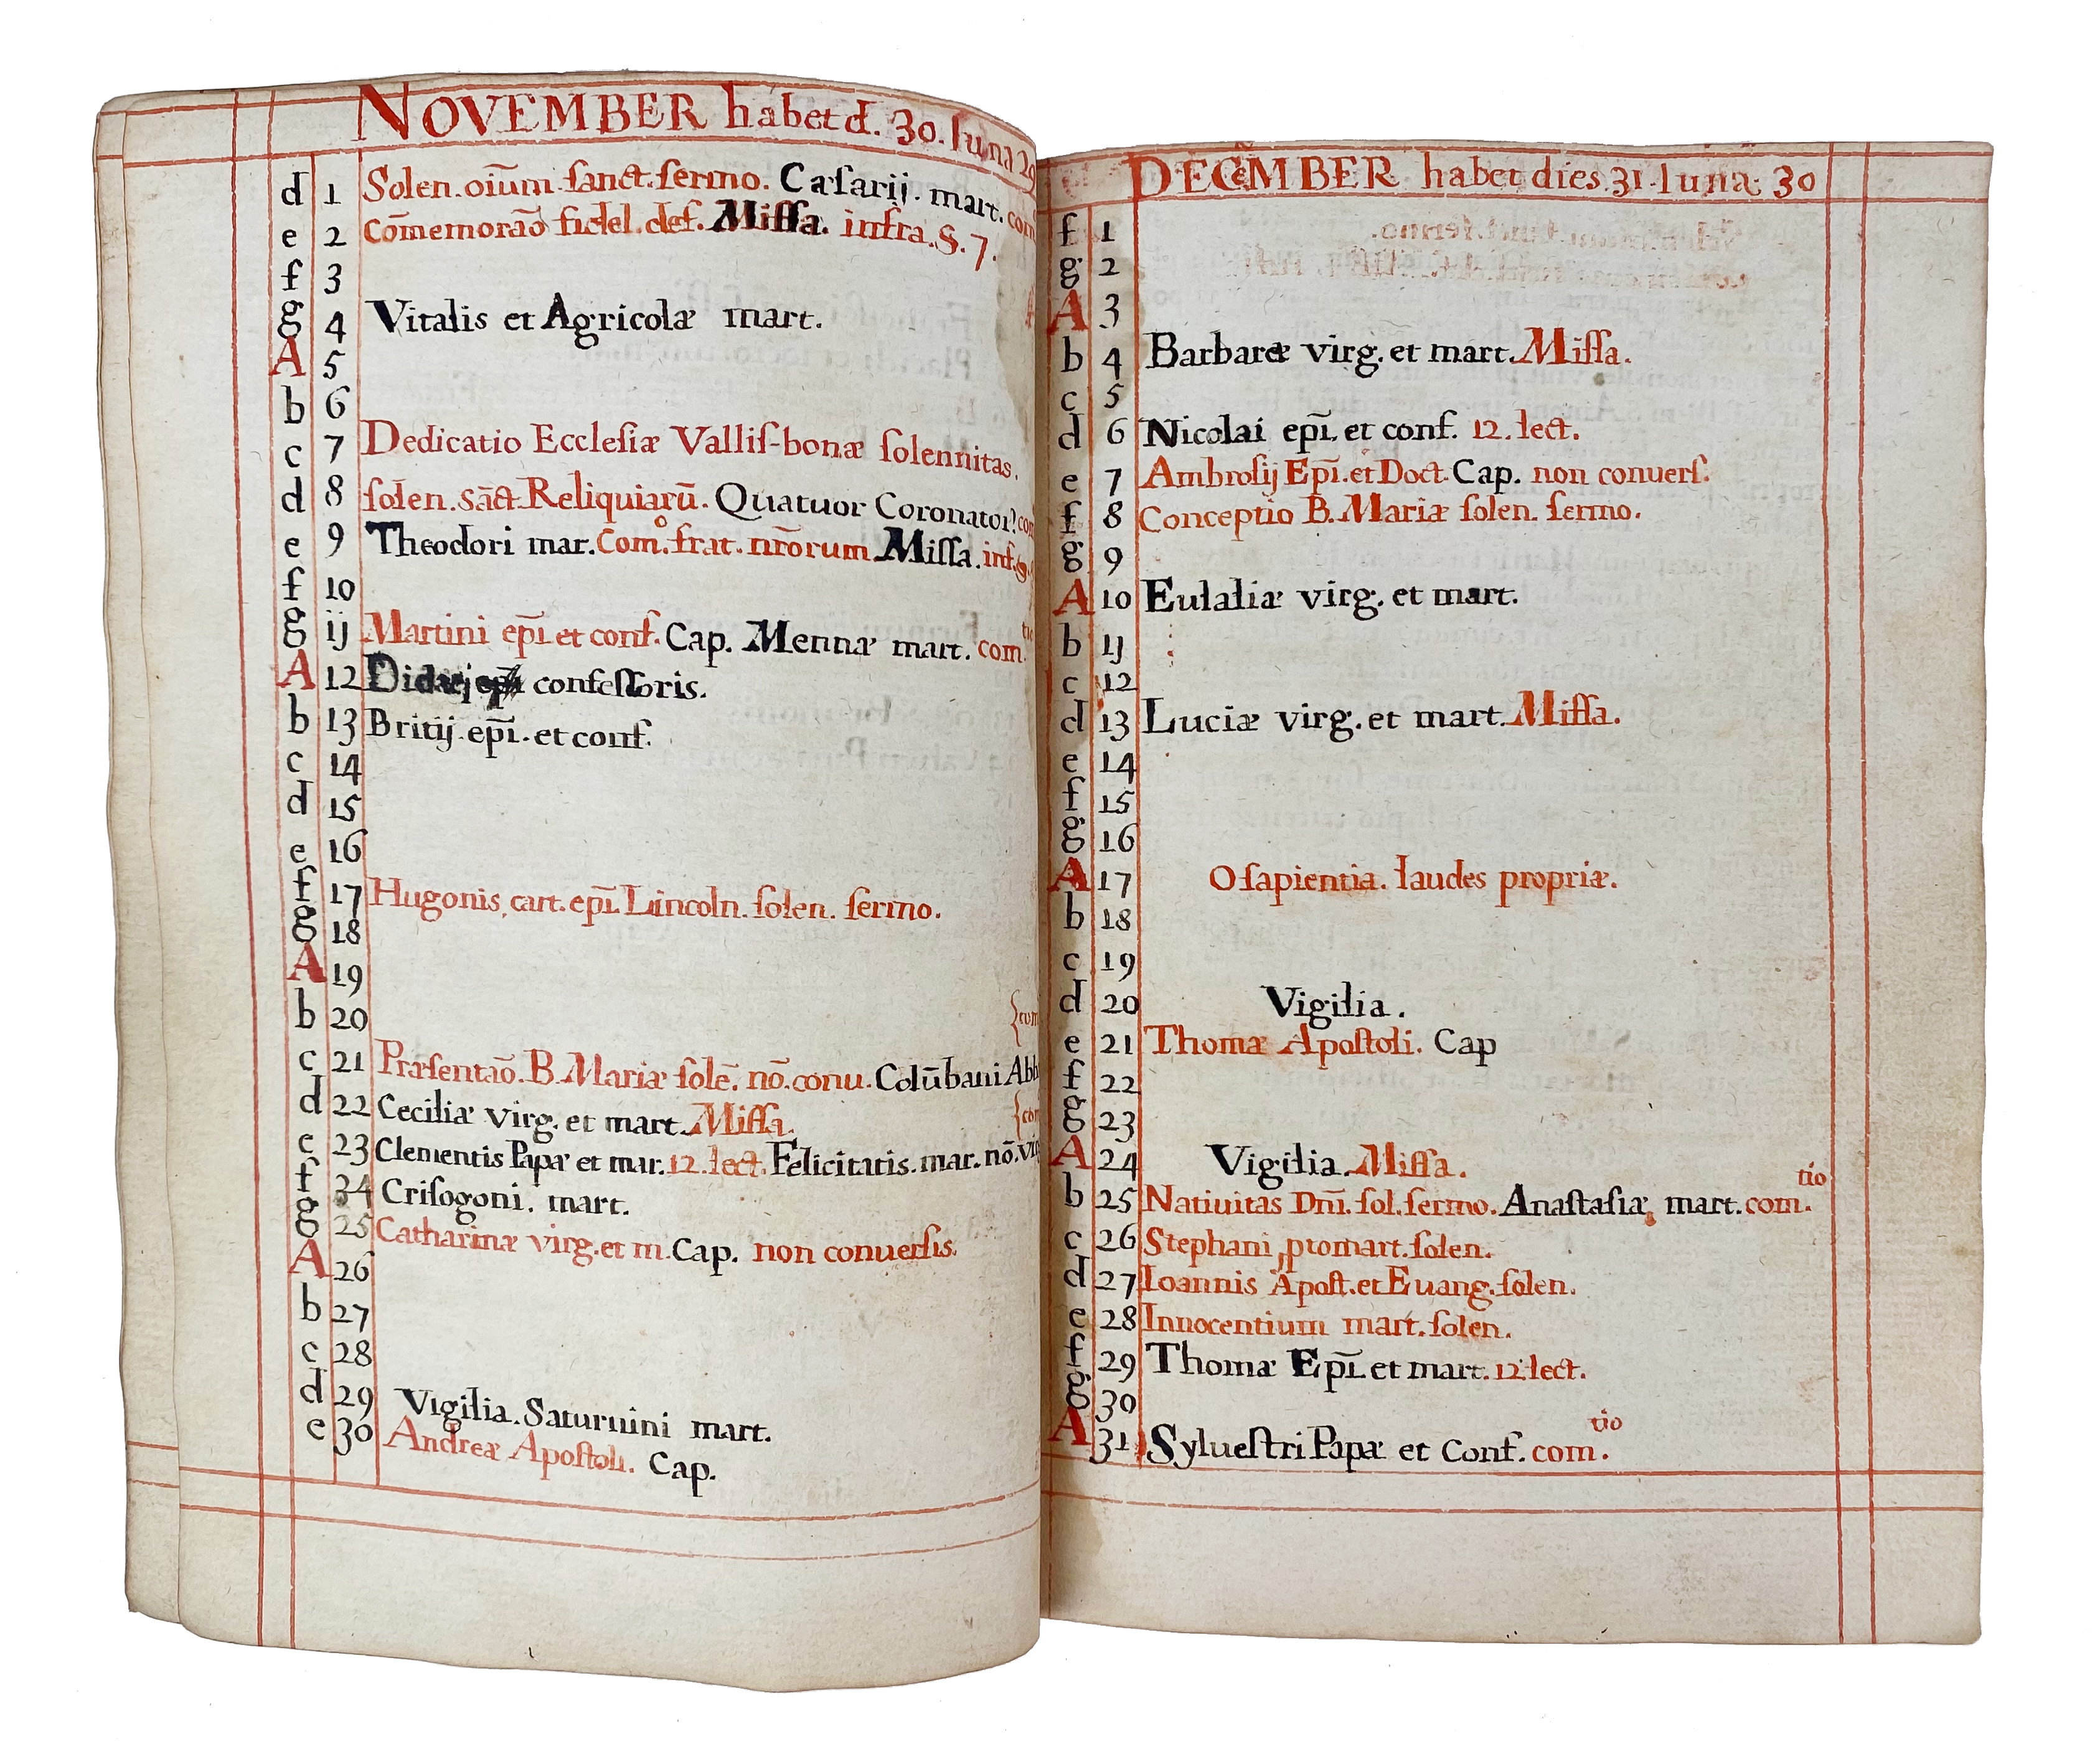 NOVEMBER habet d. 30. luna 29
d 1 Solen. oiūm. ſanct. ſermo. Caſarij. mart. com
e 2 Cōmemoraō fidel. def. Miſſa. infra. §. 7.
f 3
g 4 Vitalis et Agricolæ mart.
A 5
b 6
c 7 Dedicatio Eccleſiæ Valliſ-bonæ ſolennitas.
d 8 ſolen. sāct. Reliquiarū. Quatuor Coronator? com
e 9 Theodori mar. Com.º frat. nr̄orum Miſſa. inf. §.
f 10
g ij Martini ep̄i et conf. Cap. Mennæ mart. com. tio
A 12 confeſſoris.
b 13 Britij. ep̄i. et conf.
c 14
d 15
e 16
f 17 Hugonis, cart. ep̄i. Lincoln. ſolen. ſermo.
g 18
A 19
b 20
c 21 Præſentaō. B. Mariæ ſolē. nō. conu. Colūbani Abb {com
d 22 Ceciliæ virg. et mart. Miſſa.
e 23 Clementis Papæ et mar. 12. lect. Felicitatis. mar. nō. vir {com
f 24 Criſogoni. mart.
g 25 Catharinæ virg. et m. Cap. non conuerſis.
A 26
b 27
c 28
d 29 Vigilia. Saturnini mart.
e 30 Andreæ Apoſtoli. Cap.
DECEMBER habet dies. 31. luna. 30
f 1
g 2
A 3
b 4 Barbaræ virg. et mart. Miſſa.
c 5
d 6 Nicolai ep̄i. et conf. 12. lect.
e 7 Ambroſij Ep̄i. et Doct. Cap. non conuerſ.
f 8 Conceptio B. Mariæ ſolen. ſermo.
g 9
A 10 Eulaliæ virg. et mart.
b ij
c 12
d 13 Luciæ virg. et mart. Miſſa.
e 14
f 15
g 16
A 17 O ſapientia. laudes propriæ.
b 18
c 19
d 20 Vigilia.
e 21 Thomæ Apoſtoli. Cap
f 22
g 23
A 24 Vigilia. Miſſa.
b 25 Natiuitas Dn̄i. ſol. ſermo. Anaſtaſiæ, mart. com. tio
c 26 Stephani ptomart. ſolen.
d 27 Ioannis Apoſt. et Euang. ſolen.
e 28 Innocentium mart. ſolen.
f 29 Thomæ Ep̄i. et mart. 12. lect.
g 30
A 31 Sylueſtri Papæ et Conf. com. tio